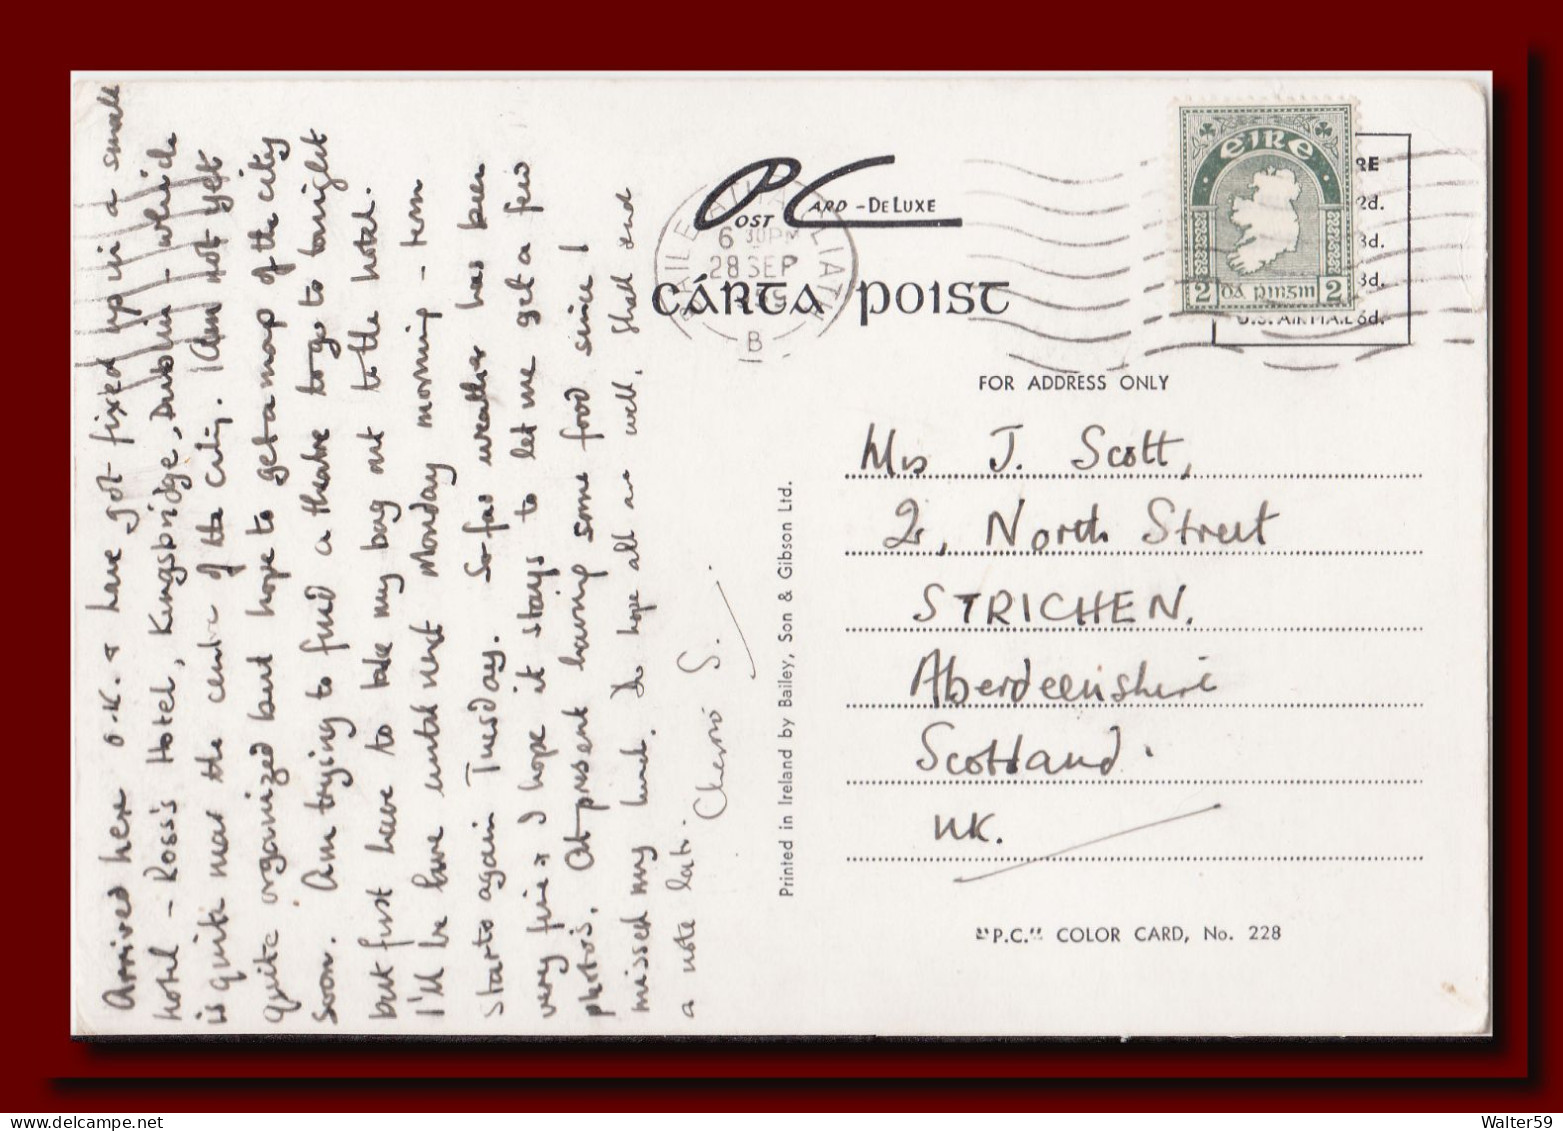 Arrived here O.K. & have got fixed up in a small
hotel – Ross's Hotel, Kingsbridge, Dublin – which
is quite near the centre of the city. Am not yet
quite organized but hope to get a map of the city
soon. Am trying to find a theatre to go to tonight
but first have to take my bag out to the hotel.
I'll be here until next Monday morning – term
starts again Tuesday. So far weather has been
very fine & I hope it stays to let me get a few
photos. At present having some food since I
missed my lunch. Do hope all are well. Shall send
a note later.
Cheerio S.
POST CARD - DELUXE
CÁRTA POIST
BAILE ÁTHA CLIATH
6 30PM
28 SEP
B
EIRE
2 DÁ PINGIN 2
RE
2d.
3d.
3d.
U.S. AIRMAIL 6d.
FOR ADDRESS ONLY
Mrs J. Scott,
2, North Street
STRICHEN.
Aberdeenshire
Scotland.
UK.
Printed in Ireland by Bailey, Son & Gibson Ltd.
"P.C." COLOR CARD, No. 228
Walter59